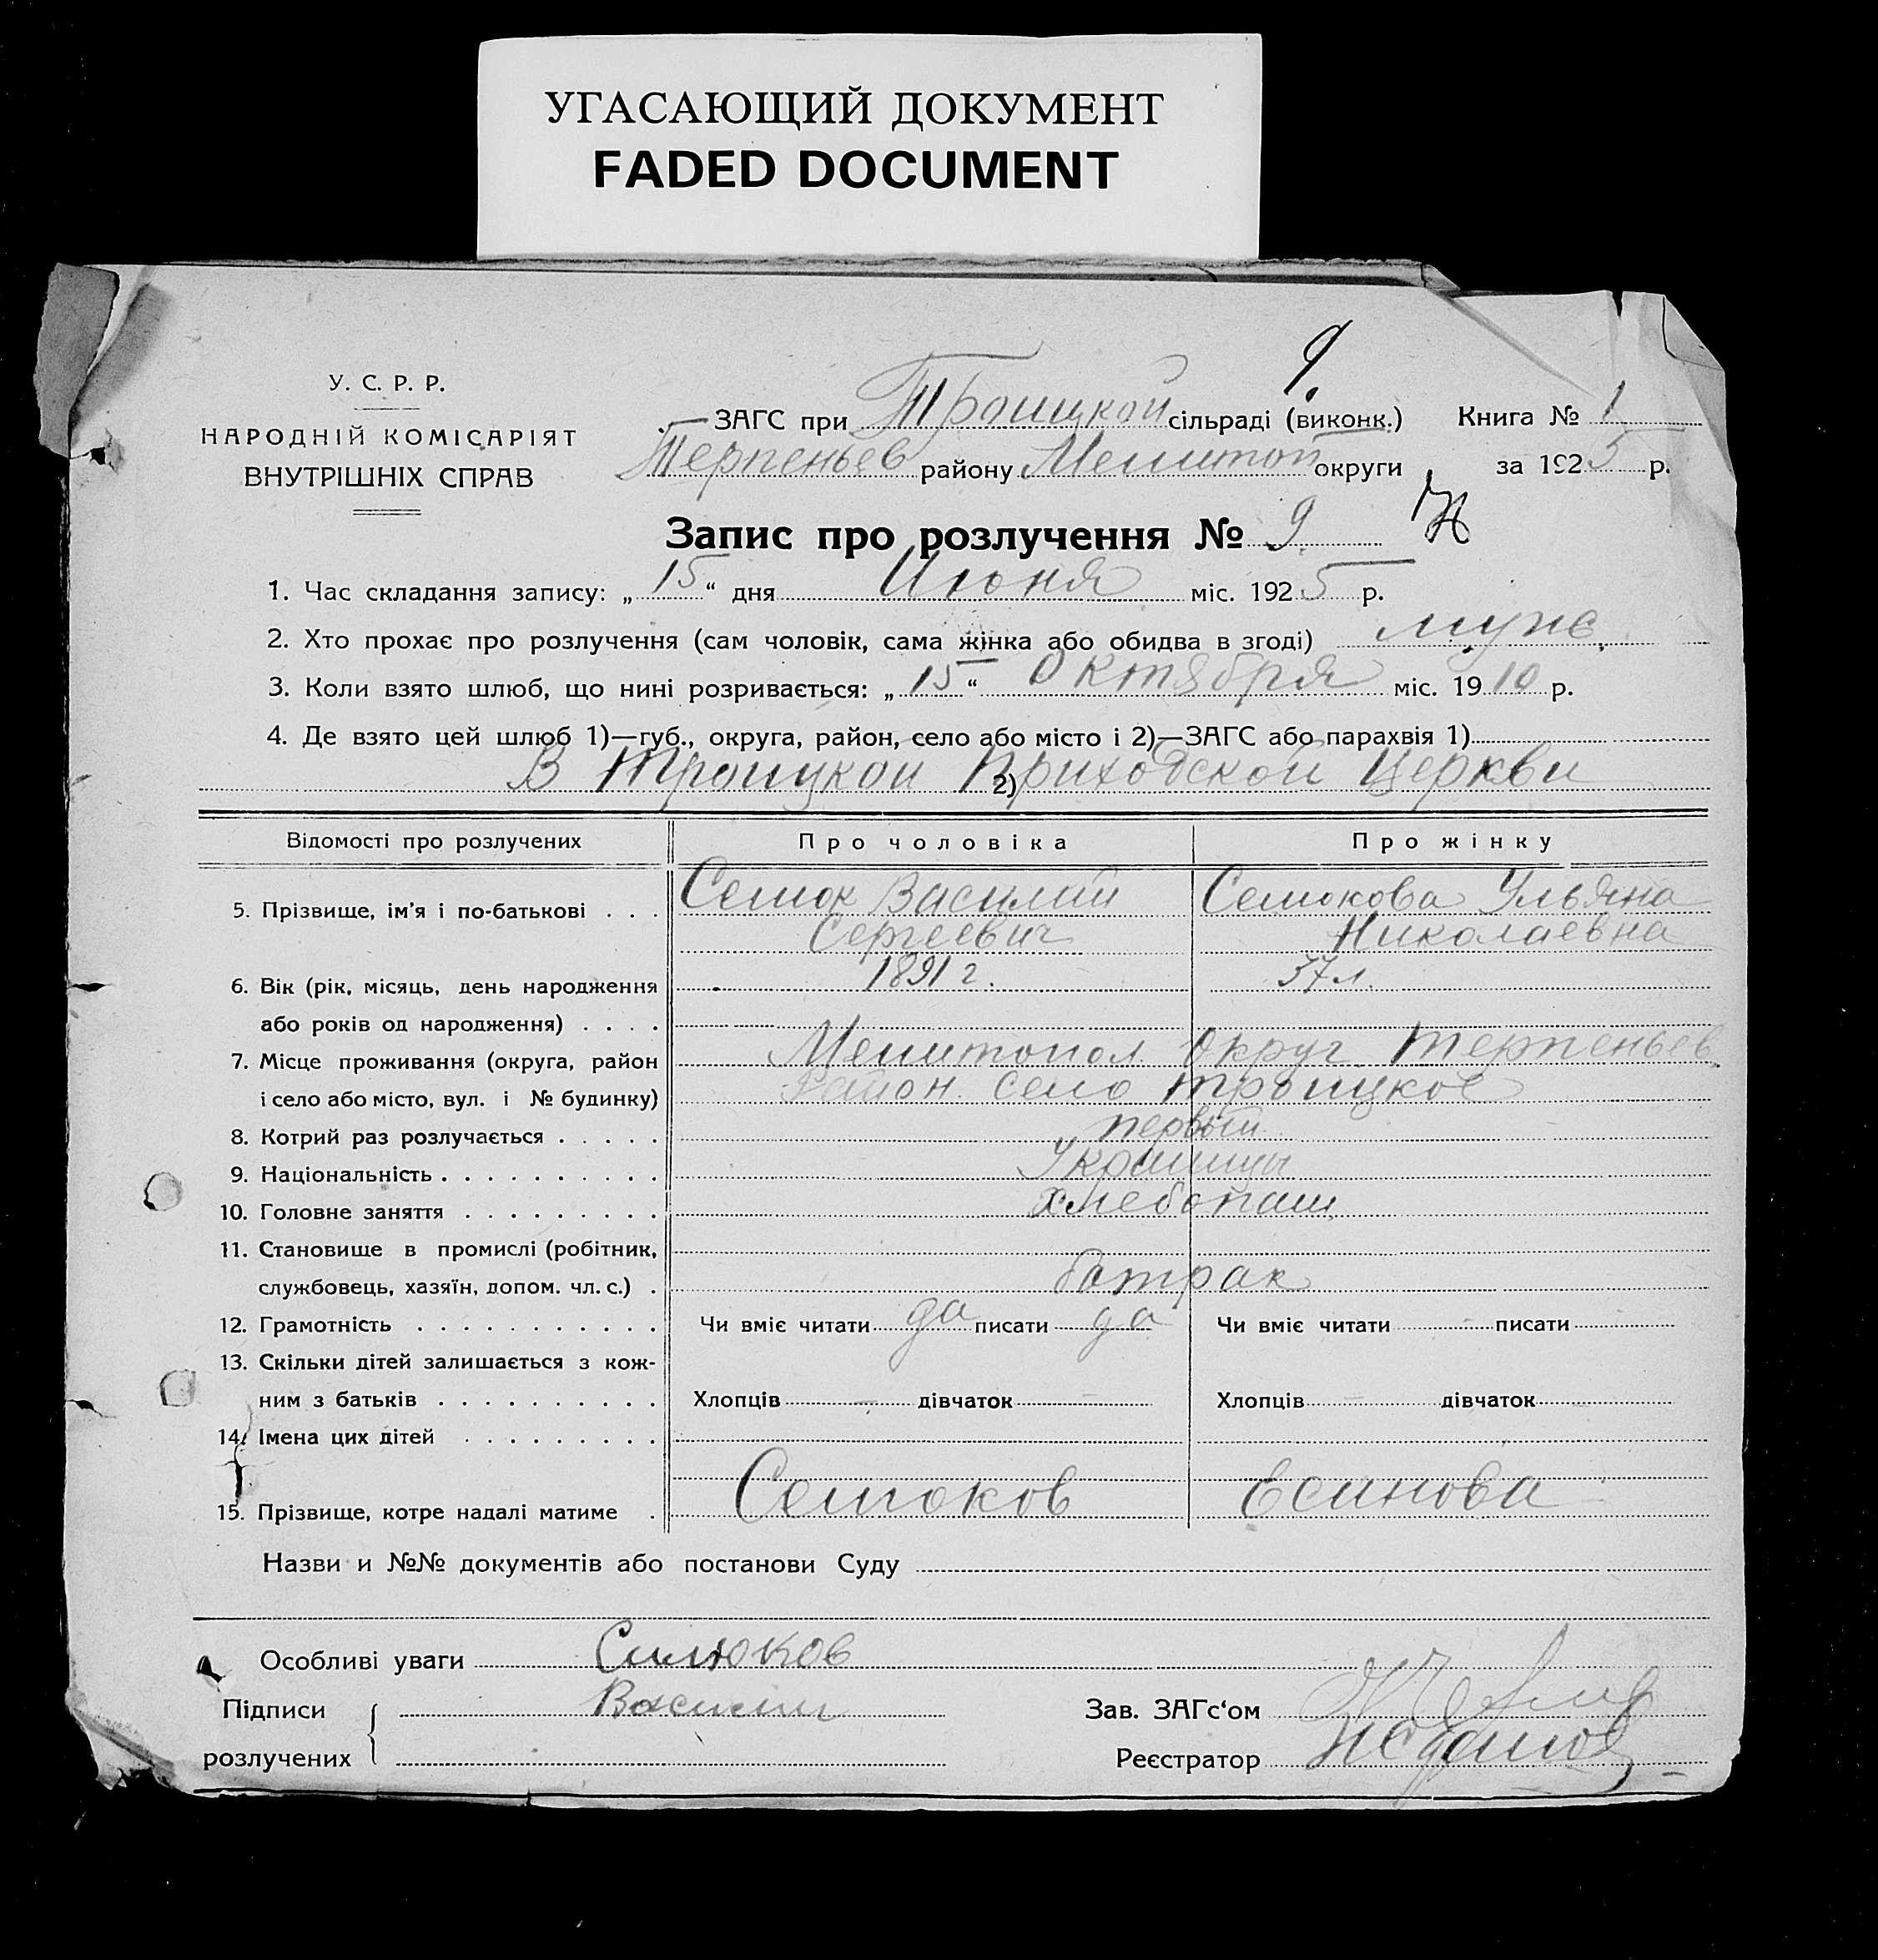 УГАСАЮЩИЙ ДОКУМЕНТ
FADED DOCUMENT
9.
У. С. Р. Р.
НАРОДНІЙ КОМІСАРІЯТ
ВНУТРІШНІХ СПРАВ
ЗАГС при Троицкой сільраді (виконк.) Книга № 1
Терпеньев району Мелитоп округи за 1925 р.
Запис про розлучення № 9.
1. Час складання запису: „ 15 “ дня Июня міс. 1925 р.
2. Хто прохає про розлучення (сам чоловік, сама жінка або обидва в згоді) муже
3. Коли взято шлюб, що нині розривається: „ 15 “ Октября міс. 1910 р.
4. Де взято цей шлюб 1)—губ., округа, район, село або місто і 2)—ЗАГС або парахвія 1)
В Троицкой 2) Приходской Церкви
Відомості про розлучених Про чоловіка Про жінку
5. Прізвище, ім'я і по-батькові . . . Семок Василий Семокова Ульяна
Сергеевич Николаевна
6. Вік (рік, місяць, день народження 1891 г. 37 л.
або років од народження) . . . .
7. Місце проживання (округа, район Мелитопол округ Терпеньев.
і село або місто, вул. і № будинку) район село Троицкое
8. Котрий раз розлучається . . . . . первый
9. Національність . . . . . . . . . . Украинцы
10. Головне заняття . . . . . . . . . хлебопаш.
11. Становище в промислі (робітник,
службовець, хазяїн, допом. чл. с.) . батрак
12. Грамотність . . . . . . . . . . . Чи вміє читати да писати да Чи вміє читати - писати
13. Скільки дітей залишається з кож-
ним з батьків . . . . . . . . . . Хлопців — дівчаток — Хлопців — дівчаток
14. Імена цих дітей . . . . . . . . .
15. Прізвище, котре надалі матиме . Семоков Есинова
Назви и №№ документів або постанови Суду
Особливі уваги Силюков
Підписи Василий Зав. ЗАГс‘ом
розлучених Реєстратор